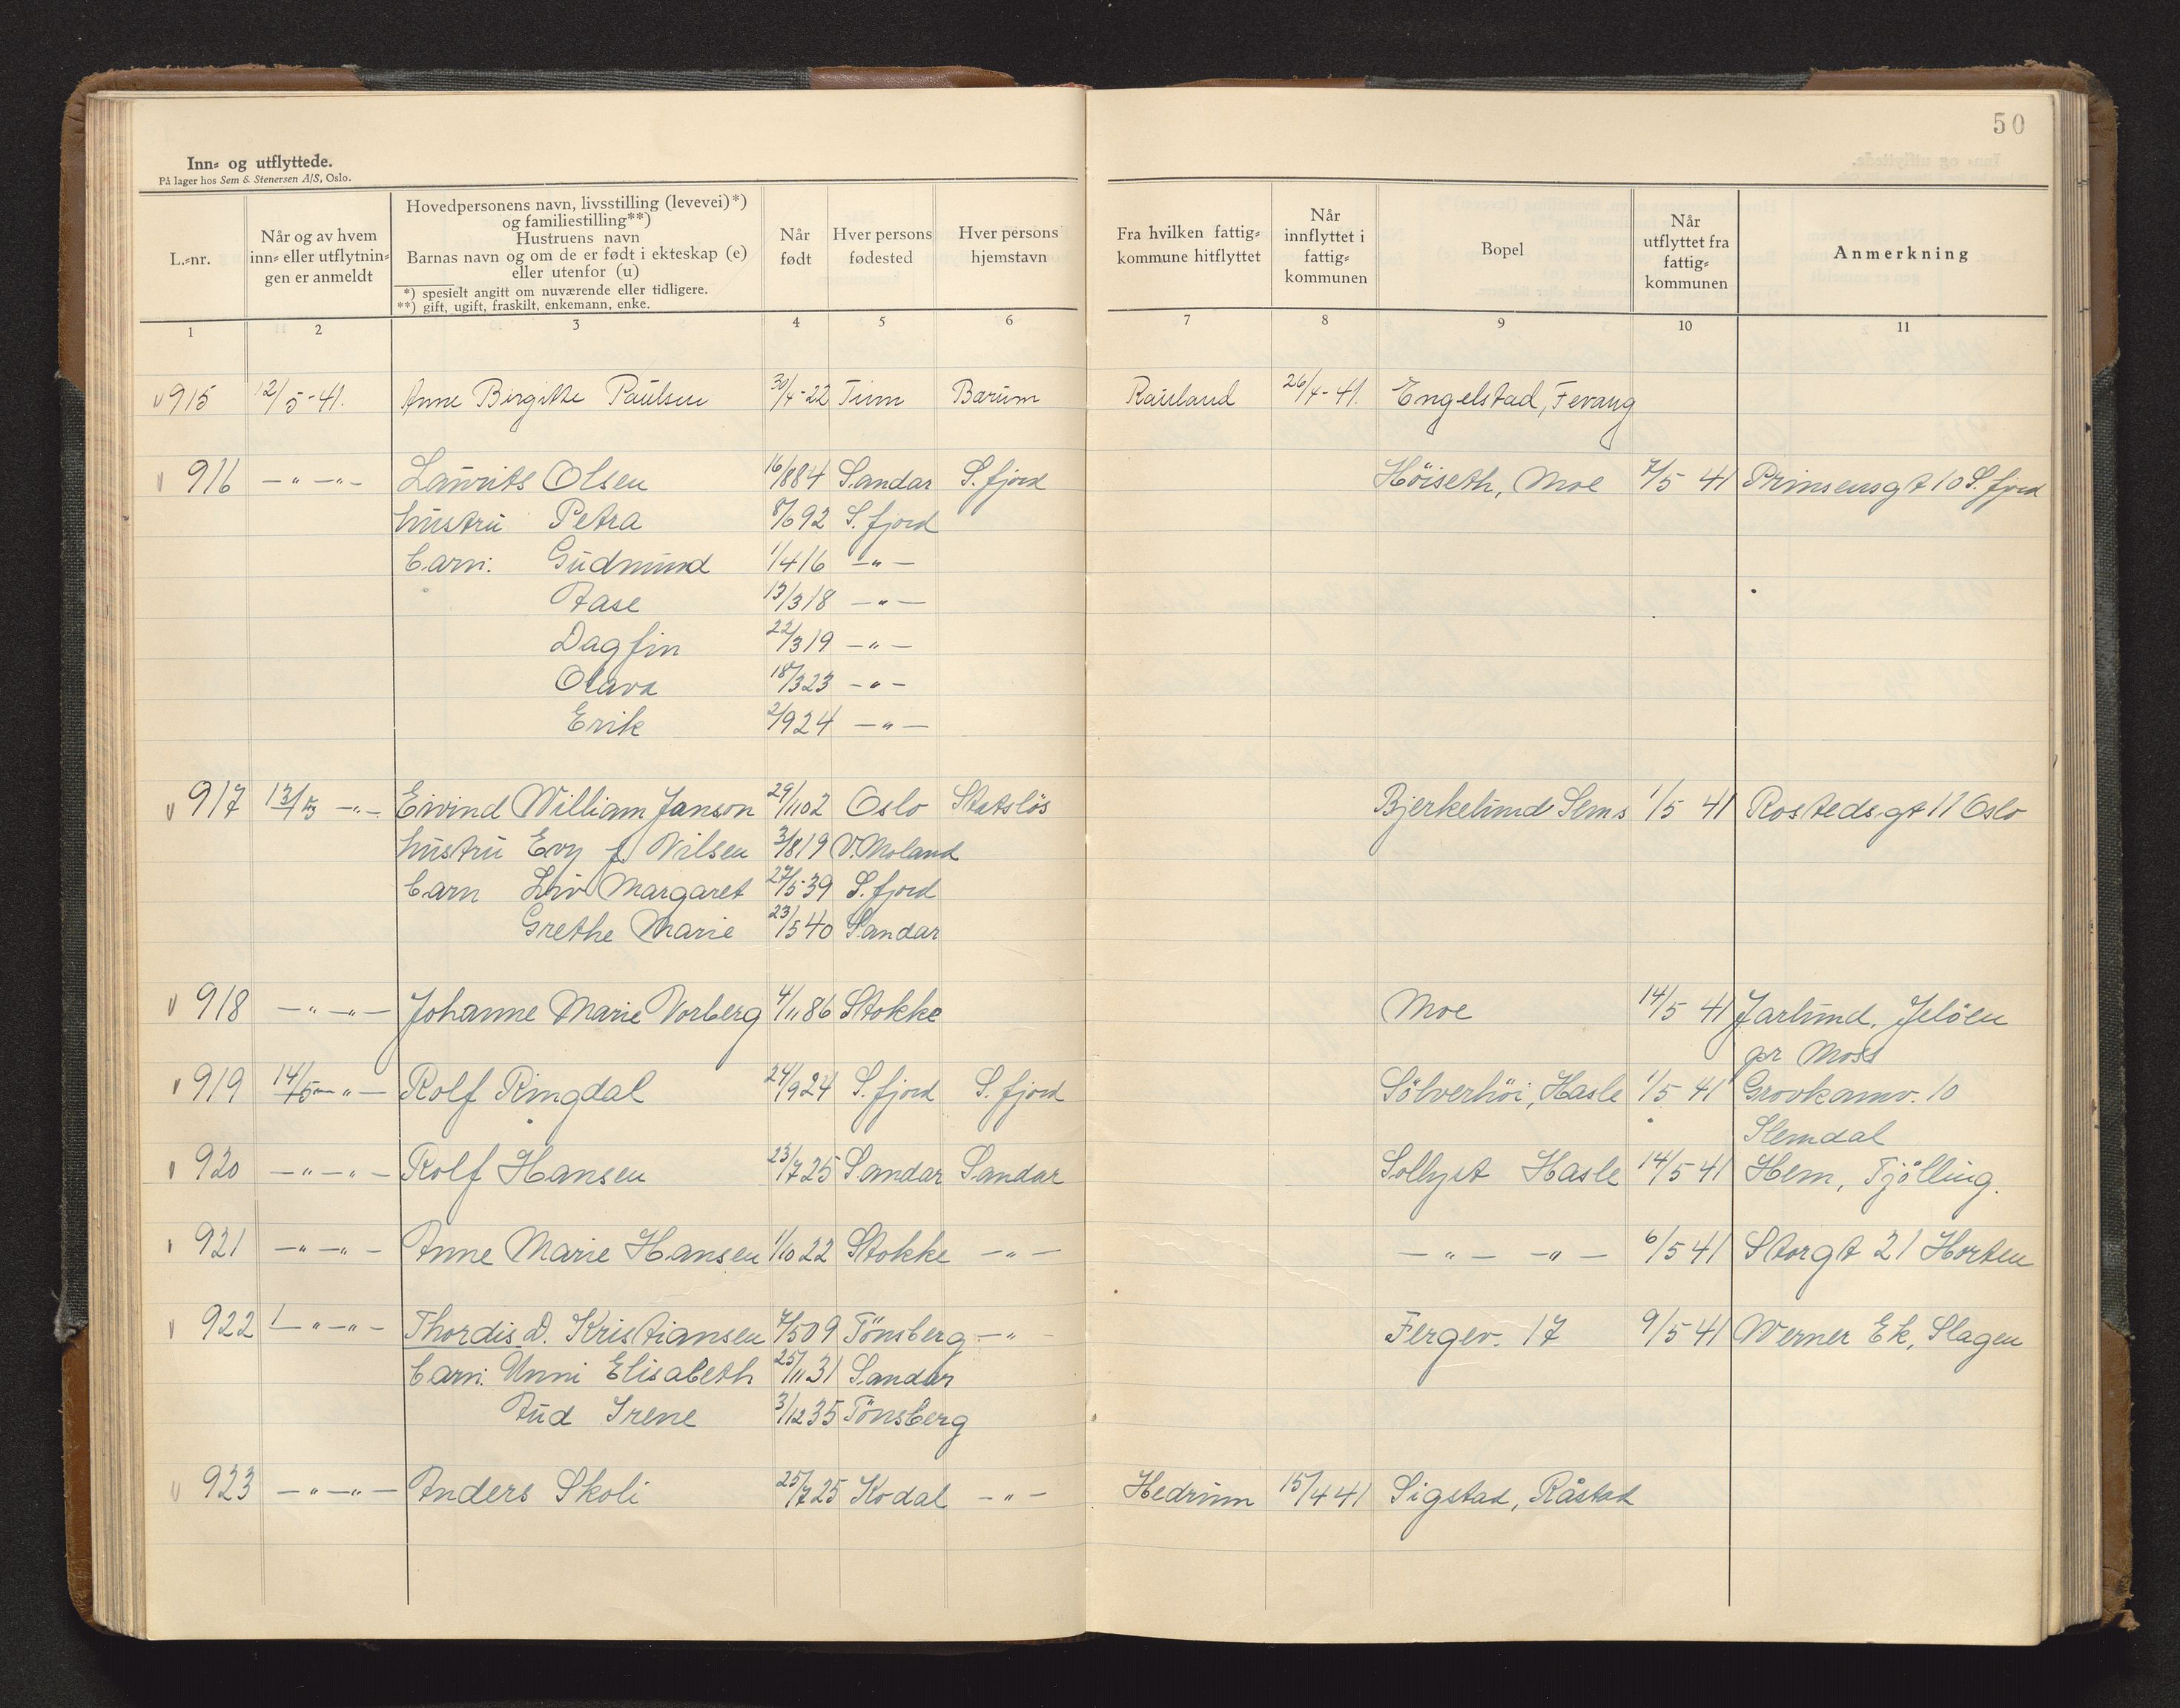 50
Inn- og utflyttede.
På lager hos Sem & Stenersen A/S, Oslo.
L.-nr.
Når og av hvem inn- eller utflytningen er anmeldt
Hovedpersonens navn, livsstilling (levevei)*) og familiestilling**)
Hustruens navn
Barnas navn og om de er født i ekteskap (e) eller utenfor (u)
*) spesielt angitt om nuværende eller tidligere.
**) gift, ugift, fraskilt, enkemann, enke.
Når født
Hver persons fødested
Hver persons hjemstavn
Fra hvilken fattigkommune hitflyttet
Når innflyttet i fattigkommunen
Bopel
Når utflyttet fra fattigkommunen
Anmerkning
1 2 3 4 5 6 7 8 9 10 11
915 12/5-41. Anne Birgitte Paulsen 30/4-22 Tinn Bærum Rauland 26/4-41. Engelstad, Fevang
916 -"- -"- Laurits Olsen 16/884 Sandar S.fjord Höiseth, Moe 7/5 41 Prinsensgt 10 S.fjord
hustru Petra 8/692 S.fjord
barn: Gudmund 1/416 -"-
Aase 13/318 -"-
Dagfin 22/319 -"-
Olava 18/323 -"-
Erik 2/924 -"-
917 13/5 -"- Eivind William Janson 29/1102 Oslo Statslös Bjerkelund Sems 1/5 41 Rostedsgt 11 Oslo
hustru Evy f. Nilsen 3/819 V.Moland
barn Liv Margaret 27/5-39 S.fjord
Grethe Marie 23/540 Sandar
918 -"- -"- Johanne Marie Vorberg 4/1186 Stokke Moe 14/5 41 Jarlund, Jelöen
pr Moss
919 14/5 -"- Rolf Ringdal 24/924 S.fjord S.fjord Sölverhöi, Hasle 1/5 41 Grovkamv. 10
Slemdal
920 -"- -"- Rolf Hansen 23/725 Sandar Sandar Sollyst Hasle 14/5 41 Hem, Tjölling.
921 -"- -"- Anne Marie Hansen 1/1022 Stokke -"- -"- -"- 6/5 41 Storgt 21 Horten
922 -"- -"- Thordis D. Kristiansen 7/509 Tönsberg -"- Fergev. 17 9/5 41 Werner Ek, Slagen
barn: Unni Elisabeth 25/1131 Sandar
Aud Irene 3/1235 Tönsberg
923 -"- -"- Anders Skoli 25/725 Kodal -"- Hedrum 15/441 Sigstad, Råstad